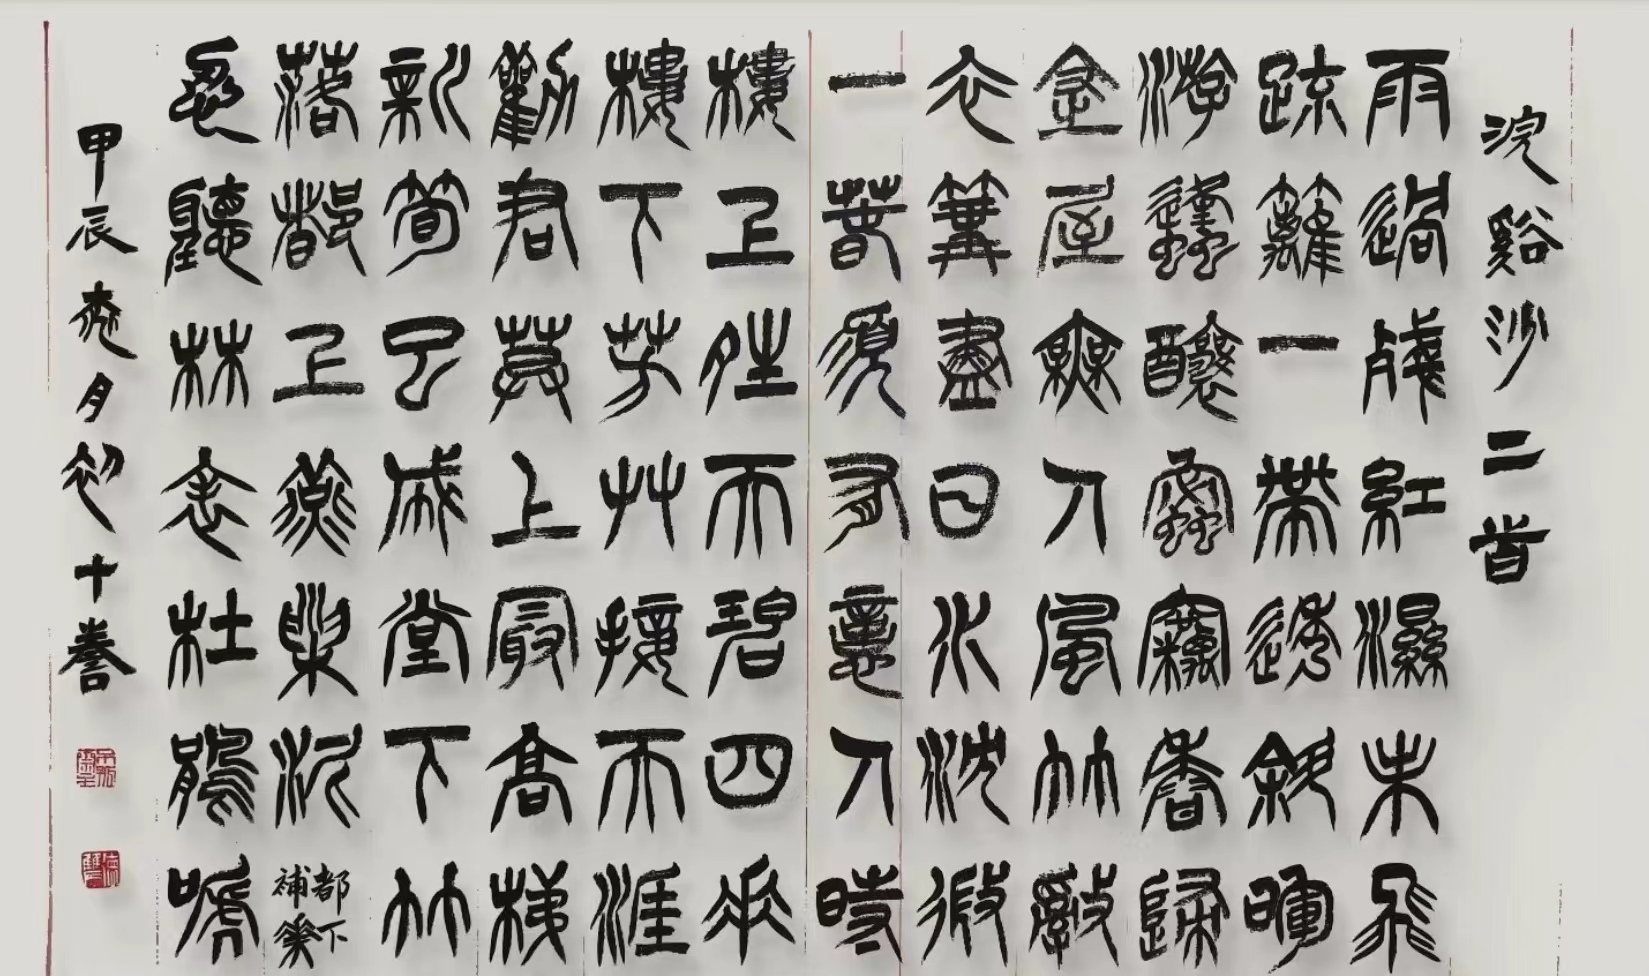 浣谿沙二首
雨過殘紅濕未飛
疏籬一帶透斜暉
游蠭釀蜜竊香歸
金屋無人風竹亂
衣篝盡日水沈微
一春須有意人時
樓上晴天碧四垂
樓下芳艸接天涯
勸君莫上最高梯
新筍已成堂下竹
落都上燕巢泥
都下補花
忍聽林表杜鵑啼
甲辰桃月初十誊